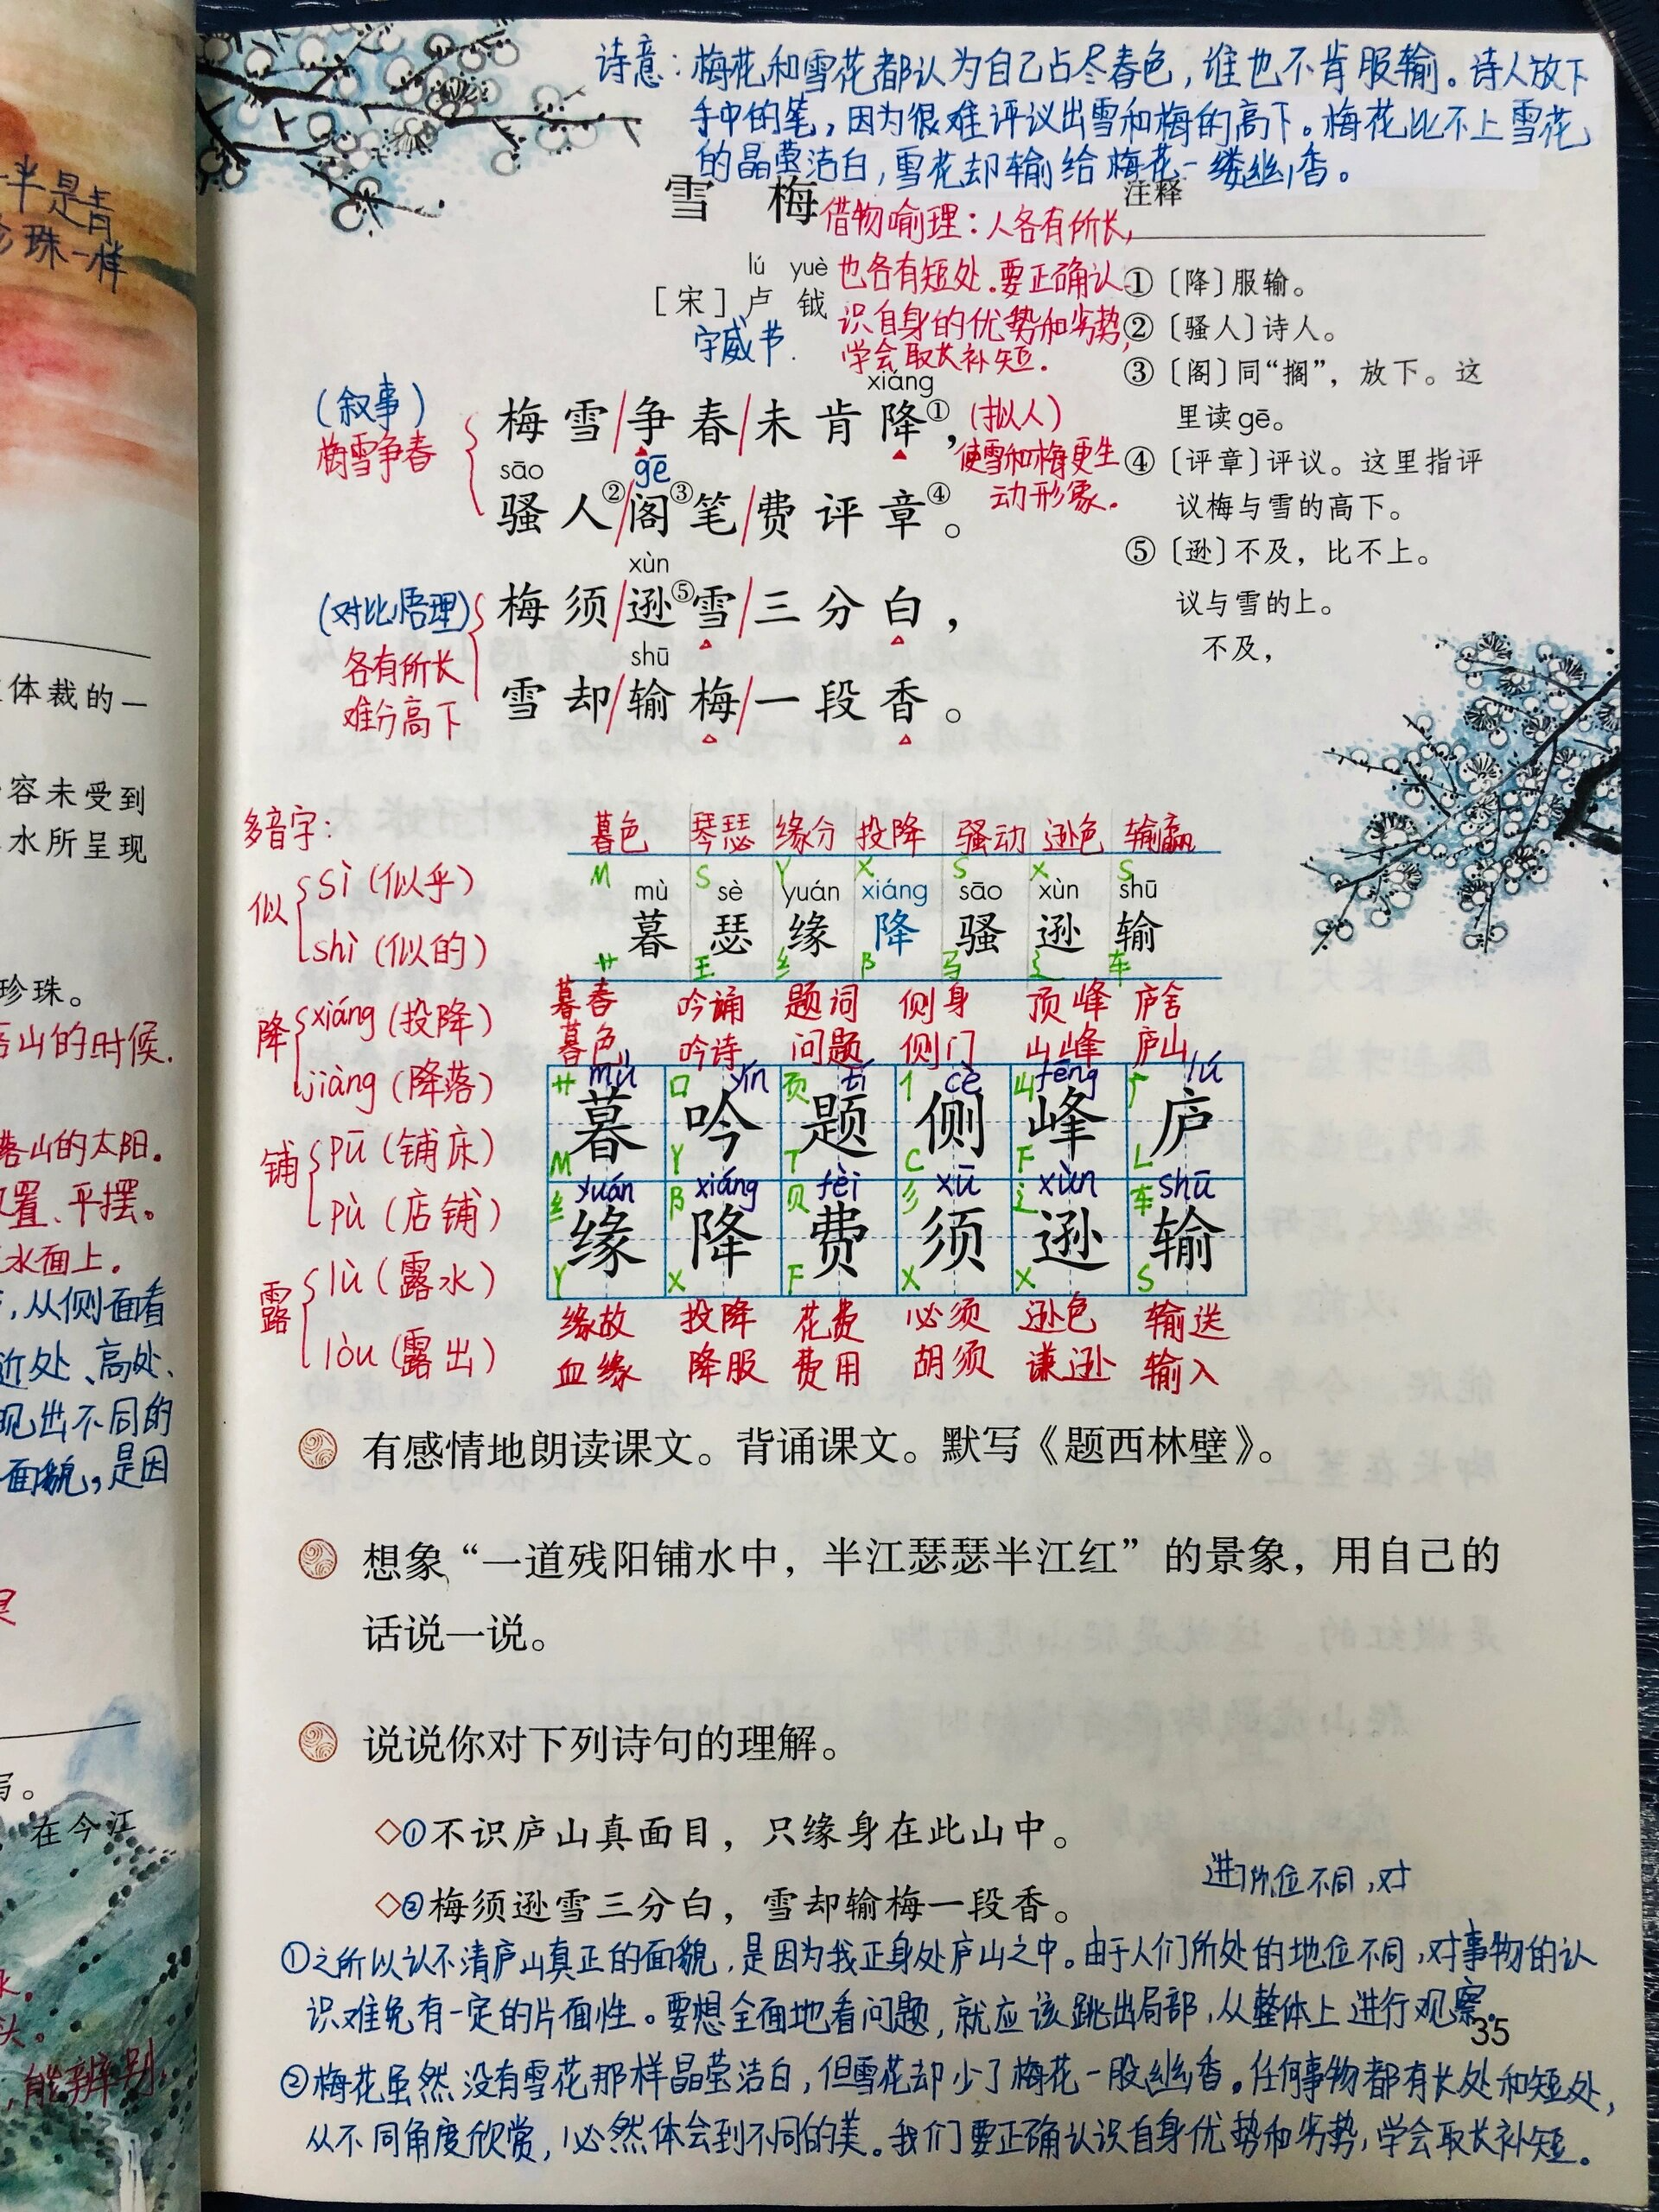 半是青
珍珠一样
体裁的一
容未受到
水所呈现
珍珠。
山的时候.
落山的太阳.
置、平摆。
水面上.
,从侧面看
近处、高处、
现出不同的
面貌,是因
写。
在今江
头。
,能辨别.
诗意:梅花和雪花都认为自己占尽春色,谁也不肯服输。诗人放下
手中的笔,因为很难评议出雪和梅的高下。梅花比不上雪花
的晶莹洁白,雪花却输给梅花一缕幽香。
雪 梅
借物喻理:人各有所长,
也各有短处.要正确认
识自身的优势和劣势,
学会取长补短.
lú yuè
[宋] 卢 钺
字威节.
(叙事)
梅雪争春
xiáng
梅雪/争春/未肯降①,
(拟人)
使雪和梅更生
动形象.
sāo gē
骚人②/阁③笔/费评章④。
(对比悟理)
各有所长
难分高下
xùn
梅须/逊⑤雪/三分白,
shū
雪却/输梅/一段香。
注释
①〔降〕服输。
②〔骚人〕诗人。
③〔阁〕同“搁”,放下。这
里读gē。
④〔评章〕评议。这里指评
议梅与雪的高下。
⑤〔逊〕不及,比不上。
议与雪的上。
不及,
多音字:
似 sì (似乎)
shì (似的)
降 xiáng (投降)
jiàng (降落)
铺 pū (铺床)
pù (店铺)
露 lù (露水)
lòu (露出)
暮色 琴瑟 缘分 投降 骚动 逊色 输赢
M S Y X S X S
mù sè yuán xiáng sāo xùn shū
暮 瑟 缘 降 骚 逊 输
艹 王 纟 阝 马 辶 车
暮春 吟诵 题词 侧身 顶峰 庐舍
暮色 吟诗 问题 侧门 山峰 庐山
艹 mù 口 yín 页 tí 亻 cè 山 fēng 广 lú
暮 吟 题 侧 峰 庐
M Y T C F L
纟 yuán 阝 xiáng 贝 fèi 彡 xū 辶 xùn 车 shū
缘 降 费 须 逊 输
Y X F X X S
缘故 投降 花费 必须 逊色 输送
血缘 降服 费用 胡须 谦逊 输入
有感情地朗读课文。背诵课文。默写《题西林壁》。
想象“一道残阳铺水中,半江瑟瑟半江红”的景象,用自己的
话说一说。
说说你对下列诗句的理解。
◇①不识庐山真面目,只缘身在此山中。
◇②梅须逊雪三分白,雪却输梅一段香。
位不同,对
①之所以认不清庐山真正的面貌,是因为我正身处庐山之中。由于人们所处的地位不同,对事物的认
识难免有一定的片面性。要想全面地看问题,就应该跳出局部,从整体上进行观察。
35
②梅花虽然没有雪花那样晶莹洁白,但雪花却少了梅花一股幽香。任何事物都有长处和短处,
从不同角度欣赏,必然体会到不同的美。我们要正确认识自身优势和劣势,学会取长补短。